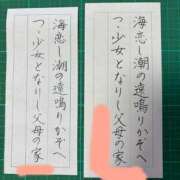 海恋し潮の遠鳴りかぞへ
つゝ少女となりし父母の家
海恋し潮の遠鳴りかぞへ
つゝ少女となりし父母の家